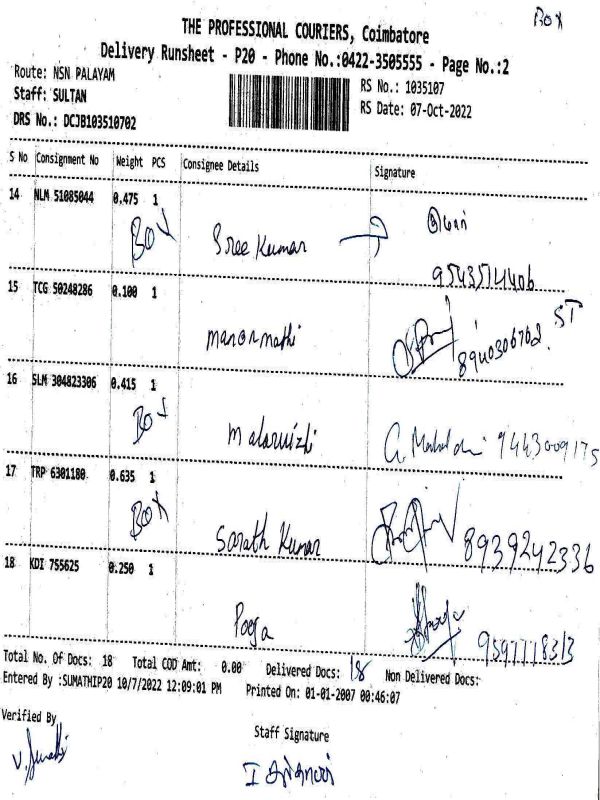 BOX
THE PROFESSIONAL COURIERS, Coimbatore
Delivery Runsheet - P20 - Phone No.:0422-3505555 - Page No.:2
Route: NSN PALAYAM
RS No.: 1035107
Staff: SULTAN
RS Date: 07-Oct-2022
DRS No.: DCJB103510702
S No Consignment No Weight PCS Consignee Details Signature
14 NLM 51085044 0.475 1
BOX Sree Kumar
9543514406
15 TCG 50248286 0.100 1
ST
manormathi 8940306702
16 SLM 304823306 0.415 1
BOX
malarvizhi 9443009175
17 TRP 6301180 0.635 1
BOX
Sarath Kumar 8939242336
18 KDI 755625 0.250 1
Pooja 9597778313
Total No. Of Docs: 18 Total COD Amt: 0.00 Delivered Docs: 18 Non Delivered Docs:
Entered By :SUMATHIP20 10/7/2022 12:09:01 PM Printed On: 01-01-2007 00:46:07
Verified By
Staff Signature